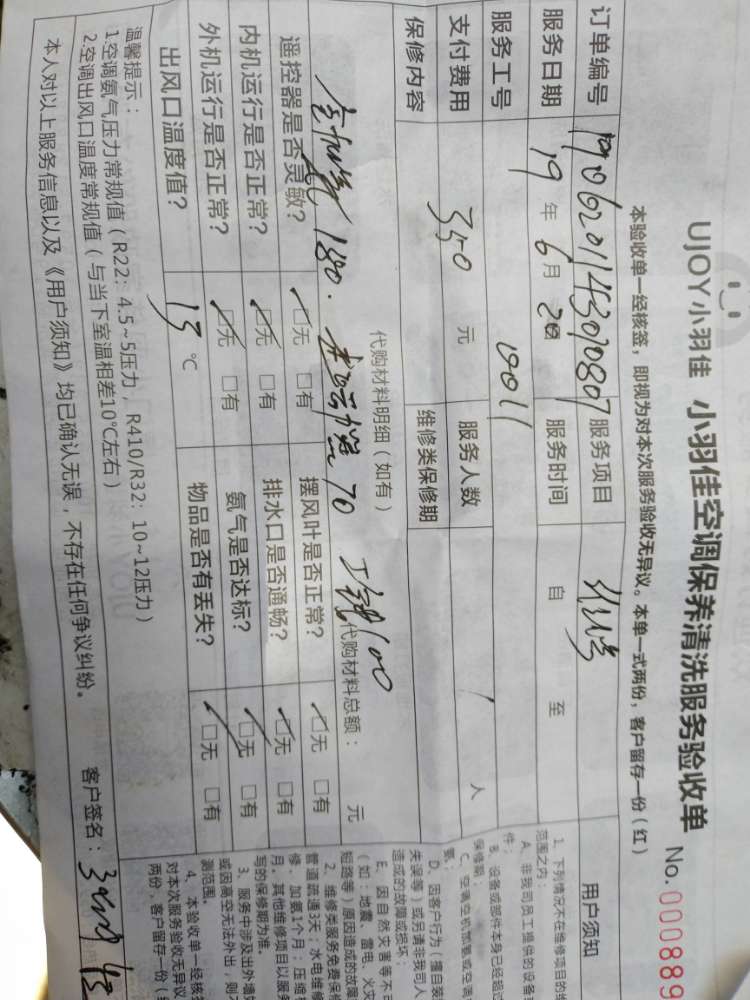 UJOY小羽佳 小羽佳空调保养清洗服务验收单 No. 000889
本验收单一经核签，即视为对本次服务验收无异议。本单一式两份，客户留存一份（红）
订单编号 服务项目
服务日期 19 年 6 月 20 服务时间 自 至
服务工号 0011
支付费用 350 元 服务人数 人
保修内容 维修类保修期
代购材料明细（如有） 代购材料总额： 元
180. 70 100
遥控器是否灵敏？ □无 □有 摆风叶是否正常？ □无 □有
内机运行是否正常？ □无 □有 排水口是否通畅？ □无 □有
外机运行是否正常？ □无 □有 氨气是否达标？ □无 □有
出风口温度值？ 13 ℃ 物品是否有丢失？ □无 □有
温馨提示：
1.空调氨气压力常规值（R22：4.5~5压力，R410/R32：10~12压力）
2.空调出风口温度常规值（与当下室温相差10℃左右）
本人对以上服务信息以及《用户须知》均已确认无误，不存在任何争议纠纷。 客户签名：
用户须知
1、下列情况不在维修项目的
范围之内：
A、非我司员工提供的设备
件；
B、设备或部件本身已经超
保修期；
C、空调空机加氨或空清
氨；
D、因客户行为（擅自装
失误等）或另请非我司人
造成的故障或损坏；
E、因自然灾害等不可
（如：地震、雷电、火灾
短路等）原因造成的故障
2、维修类服务免费保修
管道疏通3天；水电维修
修、加氨1个月；压缩
月。其他维修项目以服务
写的保修期为准。
3、服务中涉及出外墙
或因高空无法外出，则
测范围。
4、本验收单一经核
对本次服务验收无异议
两份，客户留存一份（